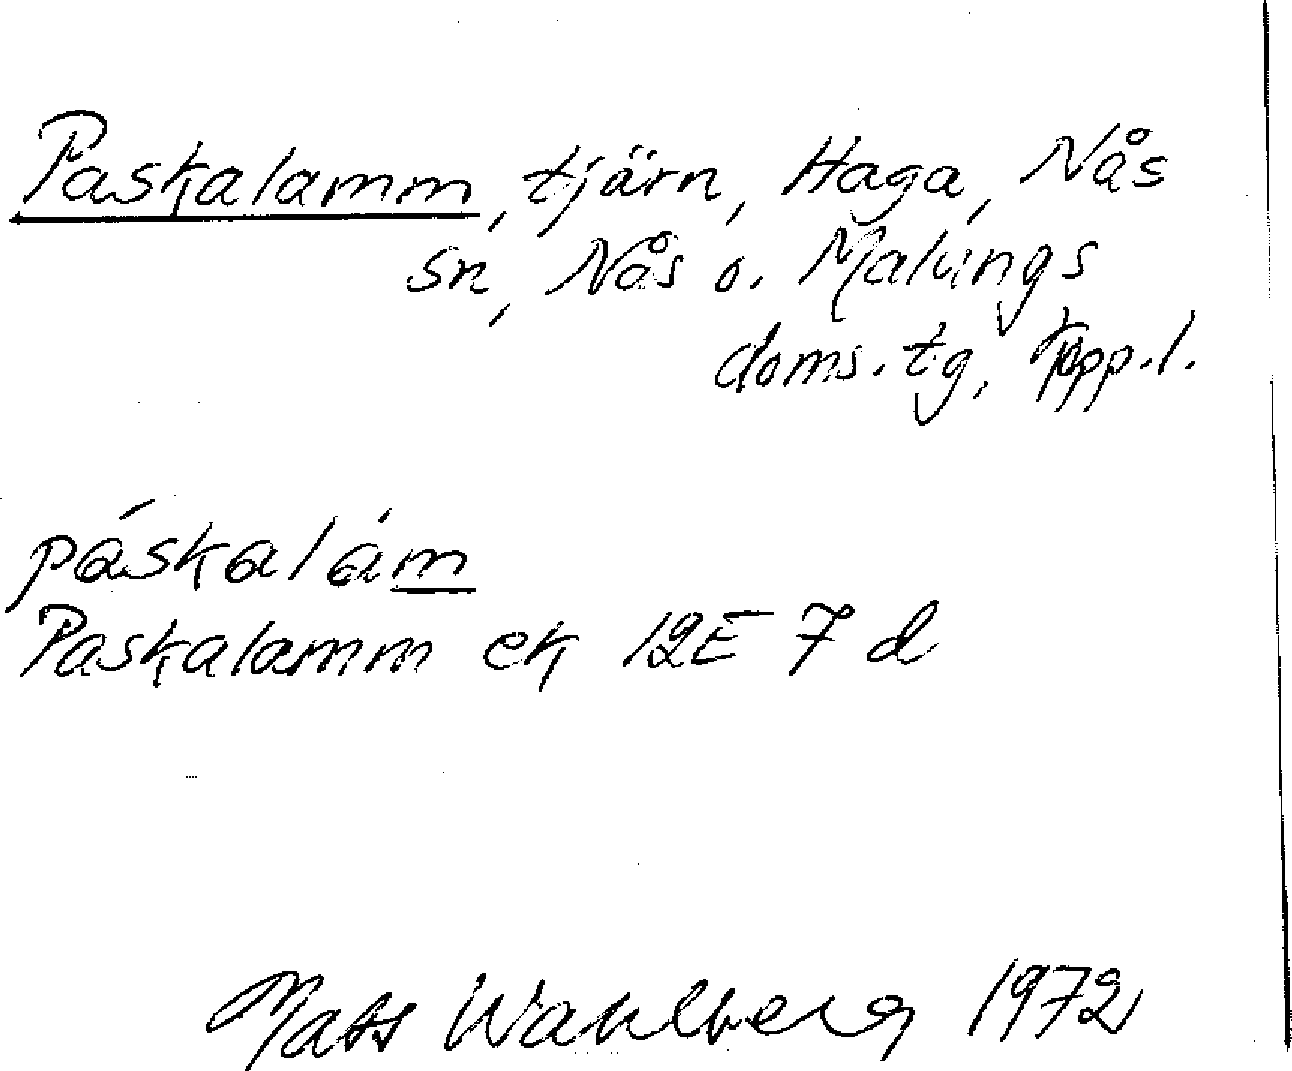 Paskalamm, tjärn, Haga, Nås
sn, Nås o. Malungs
doms. tg, Kopp. l.
páskalám
Paskalamm ek 12E 7 d
Mats Wahlberg 1972